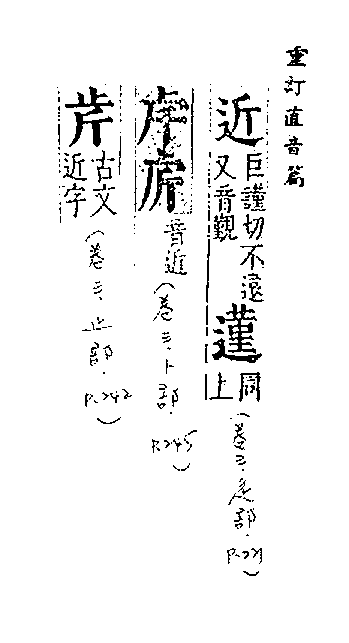 重訂直音篇
近 巨謹切不遠
又音覲
𨗿 同上
(卷三·辵部·P.221)
音近
(卷三·卜部·P.245)
古文
近字
(卷三·止部·P.242)